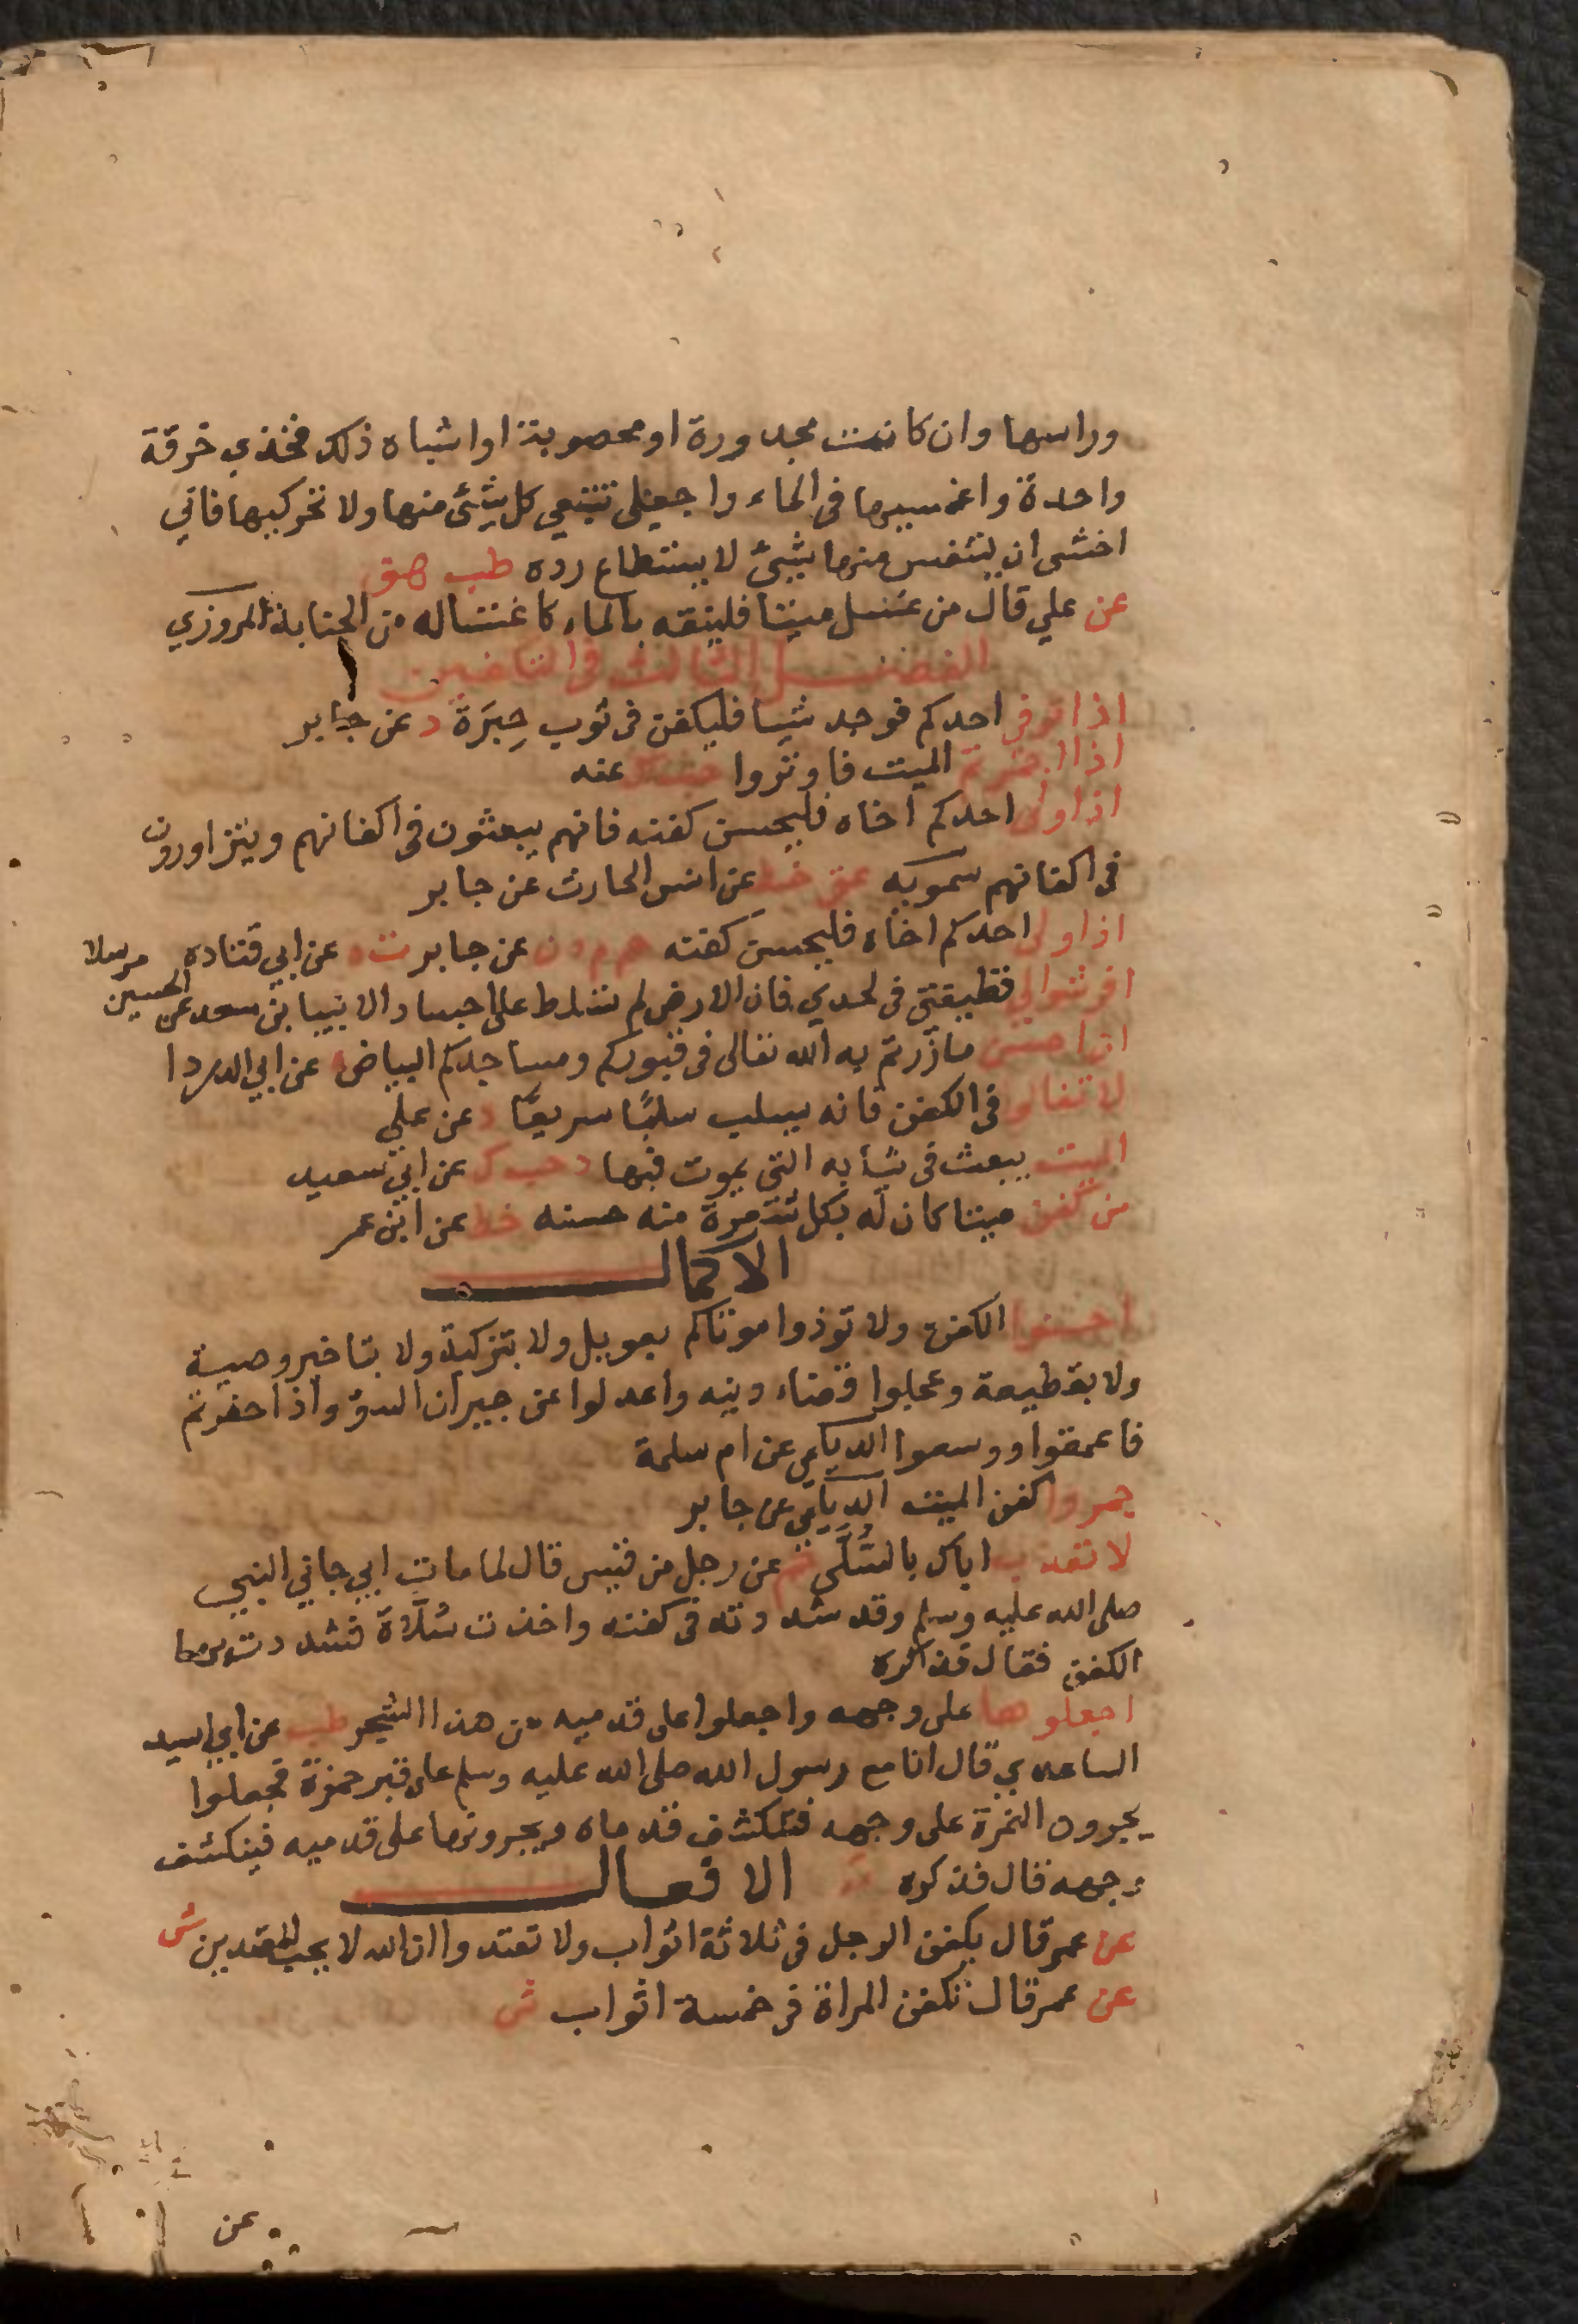 وراسها وان كانت مجدورة او محصوبة او اشباه ذلك فخذي خرقة
واحدة واغمسيها فى الماء واجعلى تتبعي كل شئ منها ولا تحركيها فاني
اخشى ان يتنفس منها شئ لا يستطاع رده طب هق
عن علي قال من غسل ميتا فلينقه بالماء كاغتساله من الجنابة المروزي
الفصل الثالث فى التكفين
اذا توفى احدكم فوجد شيا فليكفن فى ثوب حِبَرَة د عن جابر
اذا اجمرتم الميت فاوتروا حب ك عنه
اذا ولى احدكم اخاه فليحسن كفنه فانهم يبعثون فى اكفانهم ويتزاورون
فى اكفانهم سمويه عق خط عن انس الحارث عن جابر
اذا ولى احدكم اخاه فليحسن كفنه حم م د ن عن جابر ت ه عن ابي قتاده
افرشوا لي قطيفتى فى لحدي فان الارض لم تسلط على اجساد الانبيا بن سعد عن الحسين مرسلا
ان احسن ما زرتم به الله تعالى فى قبوركم ومساجدكم البياض ه عن ابي الدردا
لا تغالوا فى الكفن فانه يسلب سلبًا سريعًا د عن علي
الميت يبعث فى ثيابه التي يموت فيها د حب ك عن ابي سعيد
من كفن ميتا كان له بكل شعرة منه حسنه خط عن ابن عمر
الاكمال
احسنوا الكفن ولا توذوا موتاكم بعويل ولا بتزكية ولا بتاخير وصية
ولا بقطيعة وعجلوا قضاء دينه واعدلوا عن جيران السوّ واذا حفرتم
فاعمقوا ووسعوا الديلمي عن ام سلمة
جمروا كفن الميت الديلمي عن جابر
لا تعذب اباك بالسُّلَّى حم عن رجل من قيس قال لما مات ابي جاني النبي
صلى الله عليه وسلم وقد شددته فى كفنه واخذت سُلَّاة فشددت بها
الكفن فقال فذكره
اجعلوها على وجهه واجعلوا على قدميه من هذا الشجر طب عن ابي اسيد
الساعدي قال انا مع رسول الله صلى الله عليه وسلم على قبر حمزة فجعلوا
يجرون النمرة على وجهه فتنكشف قدماه ويجرونها على قدميه فينكشف
وجهه قال فذكره
الافعال
عن عمر قال يكفن الرجل فى ثلاثة اثواب ولا تعتدوا ان الله لا يحب المعتدين ش
عن عمر قال تكفن المراة فى خمسة اثواب ش
عن